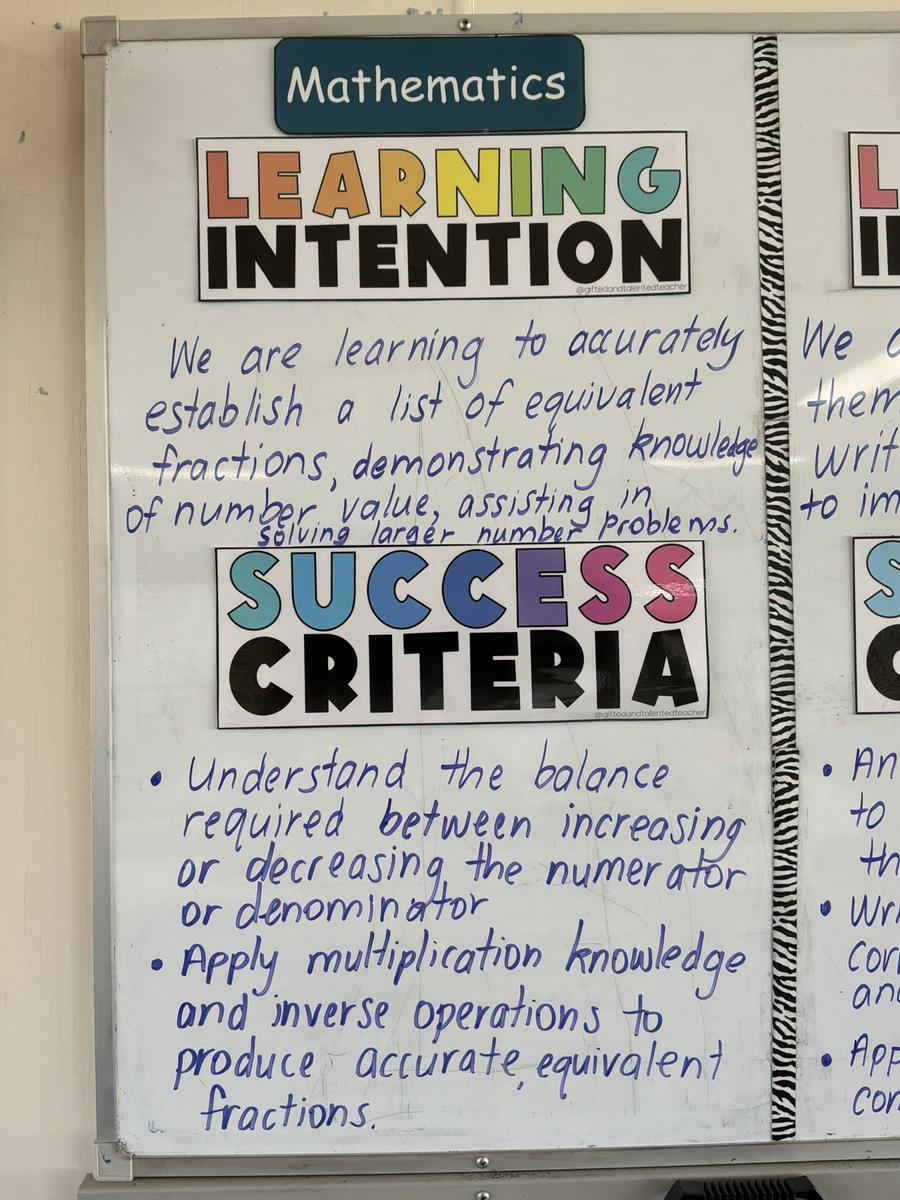 Mathematics
LEARNING
INTENTION
@giftedandtalentedteacher
We are learning to accurately
establish a list of equivalent
fractions, demonstrating knowledge
of number value, assisting in
solving larger number problems.
SUCCESS
CRITERIA
@giftedandtalentedteacher
• Understand the balance
required between increasing
or decreasing the numerator
or denominator
• Apply multiplication knowledge
and inverse operations to
produce accurate, equivalent
fractions.
L
We
them
to
to